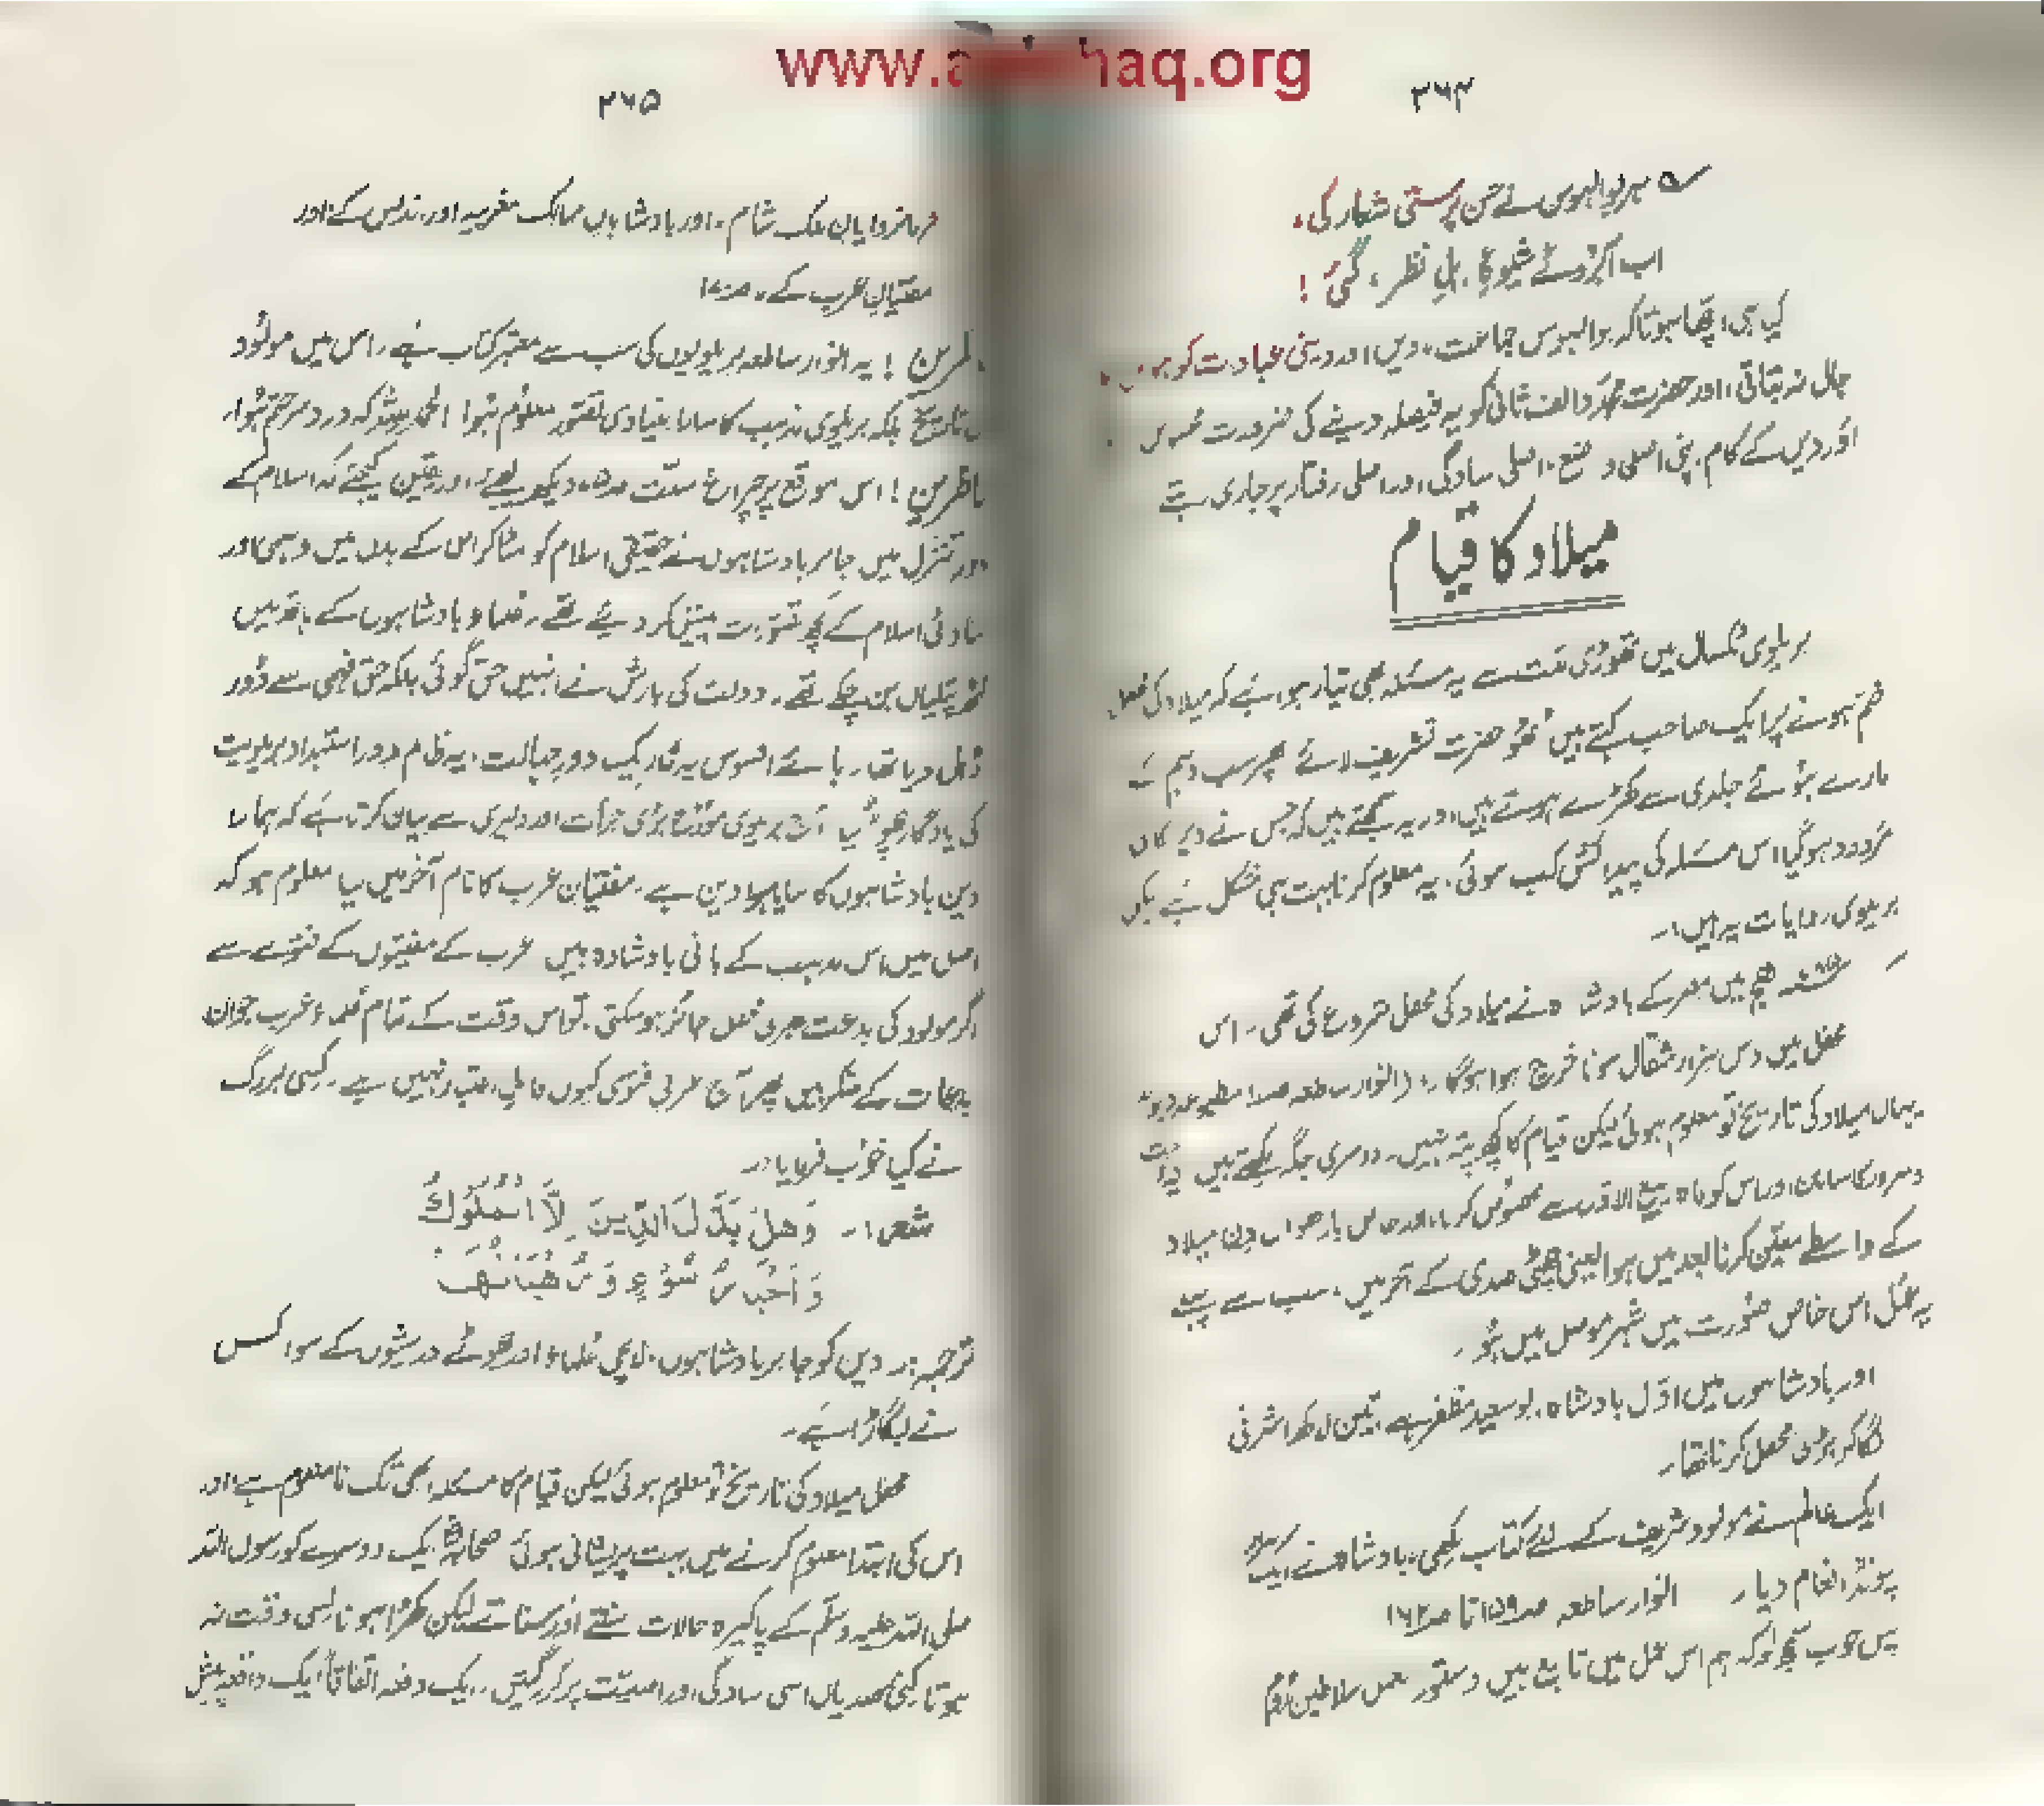 www.a haq.org
۲۶۴
ہر بوالہوس نے حسن پرستی شعار کی
اب آبروئے شیوۂ اہل نظر گئی !
کیا ہی اچھا ہوتا کہ بوالہوس جماعت دین اور دینی عبادت کو
حال نہ بناتی، اور حضرت مجدد الف ثانی کو یہ فیصلہ دینے کی ضرورت محسوس
اور دین کے کام اپنی اصلی وضع، اصلی سادگی اور اصلی رفتار پر جاری رہتے
میلاد کا قیام
بریلوی ٹکسال میں تھوڑی مدت سے یہ مسئلہ بھی تیار ہوا ہے کہ میلاد کی محفل
ختم ہونے پر ایک صاحب کہتے ہیں اٹھو حضرت تشریف لائے پھر سب وہم کے
مارے ہوئے جلدی سے کھڑے ہوتے ہیں اور یہ سمجھتے ہیں کہ جس نے دیر کی وہ
مردود ہو گیا اس مسئلہ کی پیدائش کب ہوئی، یہ معلوم کرنا بہت ہی مشکل ہے لیکن
بریلوی روایات یہ ہیں :-
میں مصر کے بادشاہ نے میلاد کی محفل شروع کی تھی۔ اس
محفل میں دس ہزار مثقال سونا خرچ ہوا ہوگا۔ (انوار ساطعہ
یہاں میلاد کی تاریخ تو معلوم ہوئی لیکن قیام کا کچھ پتہ نہیں۔ دوسری جگہ لکھتے ہیں
و سرور کا سامان اور اس کو ماہ ربیع الاول سے مخصوص کرنا اور خاص بارھواں دن میلاد
کے واسطے معین کرنا بعد میں ہوا یعنی چھٹی صدی کے آخر میں، سب سے پہلے
یہ عمل اس خاص صورت میں شہر موصل میں ہوا۔
اور بادشاہوں میں اول بادشاہ ابو سعید مظفر ہے، تین لاکھ اشرفی
لگا کر بڑی محفل کرتا تھا۔
ایک عالم نے مولود شریف کے لئے کتاب لکھی، بادشاہ نے ایک ہزار
پونڈ انعام دیا۔ انوار ساطعہ صـ۱۵۹ تا صـ۱۶۲
پس خوب سمجھ لو کہ ہم اس عمل میں تابع ہیں دستور عمل سلاطین روم
۲۶۵
فرمانروایان ملک شام، اور بادشاہان ممالک مغربیہ اور اندلس کے اور
مفتیان عرب کے،
ناظرین ! یہ انوار ساطعہ بریلویوں کی سب سے معتبر کتاب ہے، اس میں مولود
تاریخ بلکہ بریلوی مذہب کا سارا بنیادی تصور معلوم ہوا الحمد للہ کہ درد سر ختم ہوا،
ناظرین ! اس موقع پر چراغ سنت دیکھ لیجئے، اور یقین کیجئے کہ اسلام کے
دور تنزل میں جابر بادشاہوں نے حقیقی اسلام کو مٹا کر اس کے بدلہ میں وہمی اور
بناوٹی اسلام کے کچھ تصورات پیش کر دیئے تھے۔ علماء بادشاہوں کے ہاتھ میں
کٹھ پتلیاں بن چکے تھے۔ دولت کی بارش نے انہیں حق گوئی بلکہ حق فہمی سے دور
ڈال دیا تھا۔ ہائے افسوس یہ تاریک دور جہالت، یہ ظالم دور استبداد بریلویت
کی یادگار چھوڑ گیا آج بریلوی مولانا بڑی جرأت اور دلیری سے بیان کرتا ہے کہ ہمارا
دین بادشاہوں کا بنایا ہوا دین ہے، مفتیان عرب کا نام آخر میں لیا معلوم ہو کہ
اصل میں اس مذہب کے بانی بادشاہ ہیں عرب کے مفتیوں کے فتوے سے
اگر مولود کی بدعت جزئی فعل جائز ہو سکتی، تو اس وقت کے تمام علماء عرب جو ان
بدعات کے منکر ہیں پھر آج عربی فتوی کیوں قابل اعتبار نہیں ہے۔ کسی بزرگ
نے کیا خوب فرمایا :-
شعر :- وَهَلْ بَدَّلَ الدِّينَ إِلَّا الْمُلُوكُ
وَأَحْبَارُ سُوْءٍ وَرُهْبَانُهَا
ترجمہ :- دین کو جابر بادشاہوں، لالچی علماء اور جھوٹے درویشوں کے سوا کس
نے بگاڑا ہے۔
محفل میلاد کی تاریخ تو معلوم ہوئی لیکن قیام کا مسئلہ ابھی تک نا معلوم ہے، اور
اس کی ابتدا معلوم کرنے میں بہت پریشانی ہوئی صحابہؓ ایک دوسرے کو رسول اللہ
صلی اللہ علیہ وسلم کے پاکیزہ حالات سنتے اور سناتے لیکن کھڑا ہونا کسی وقت نہ
ہوتا کئی صدیاں اسی سادگی اور اصلیت پر گزر گئیں، ایک دفعہ اتفاقاً ایک واقعہ پیش